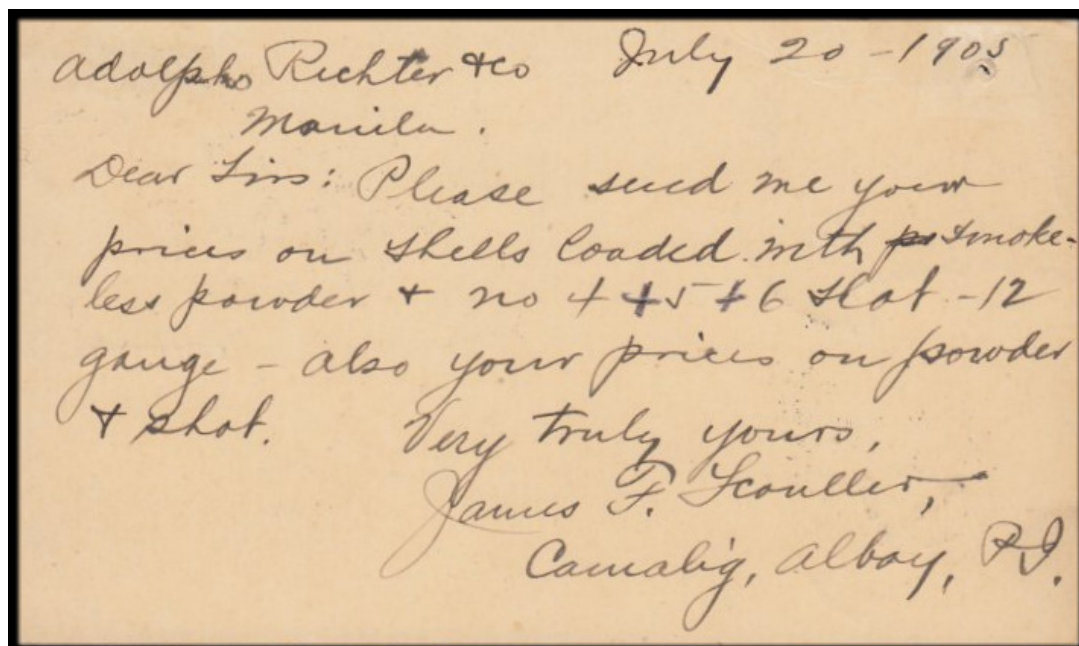 Adolpho Richter & Co July 20 - 1905
Manila.
Dear Sirs: Please send me your
prices on shells loaded with smoke-
less powder & no 4 & 5 & 6 shot - 12
gauge - also your prices on powder
& shot. Very truly yours,
James F. Scouller,
Camalig, Albay, P.I.